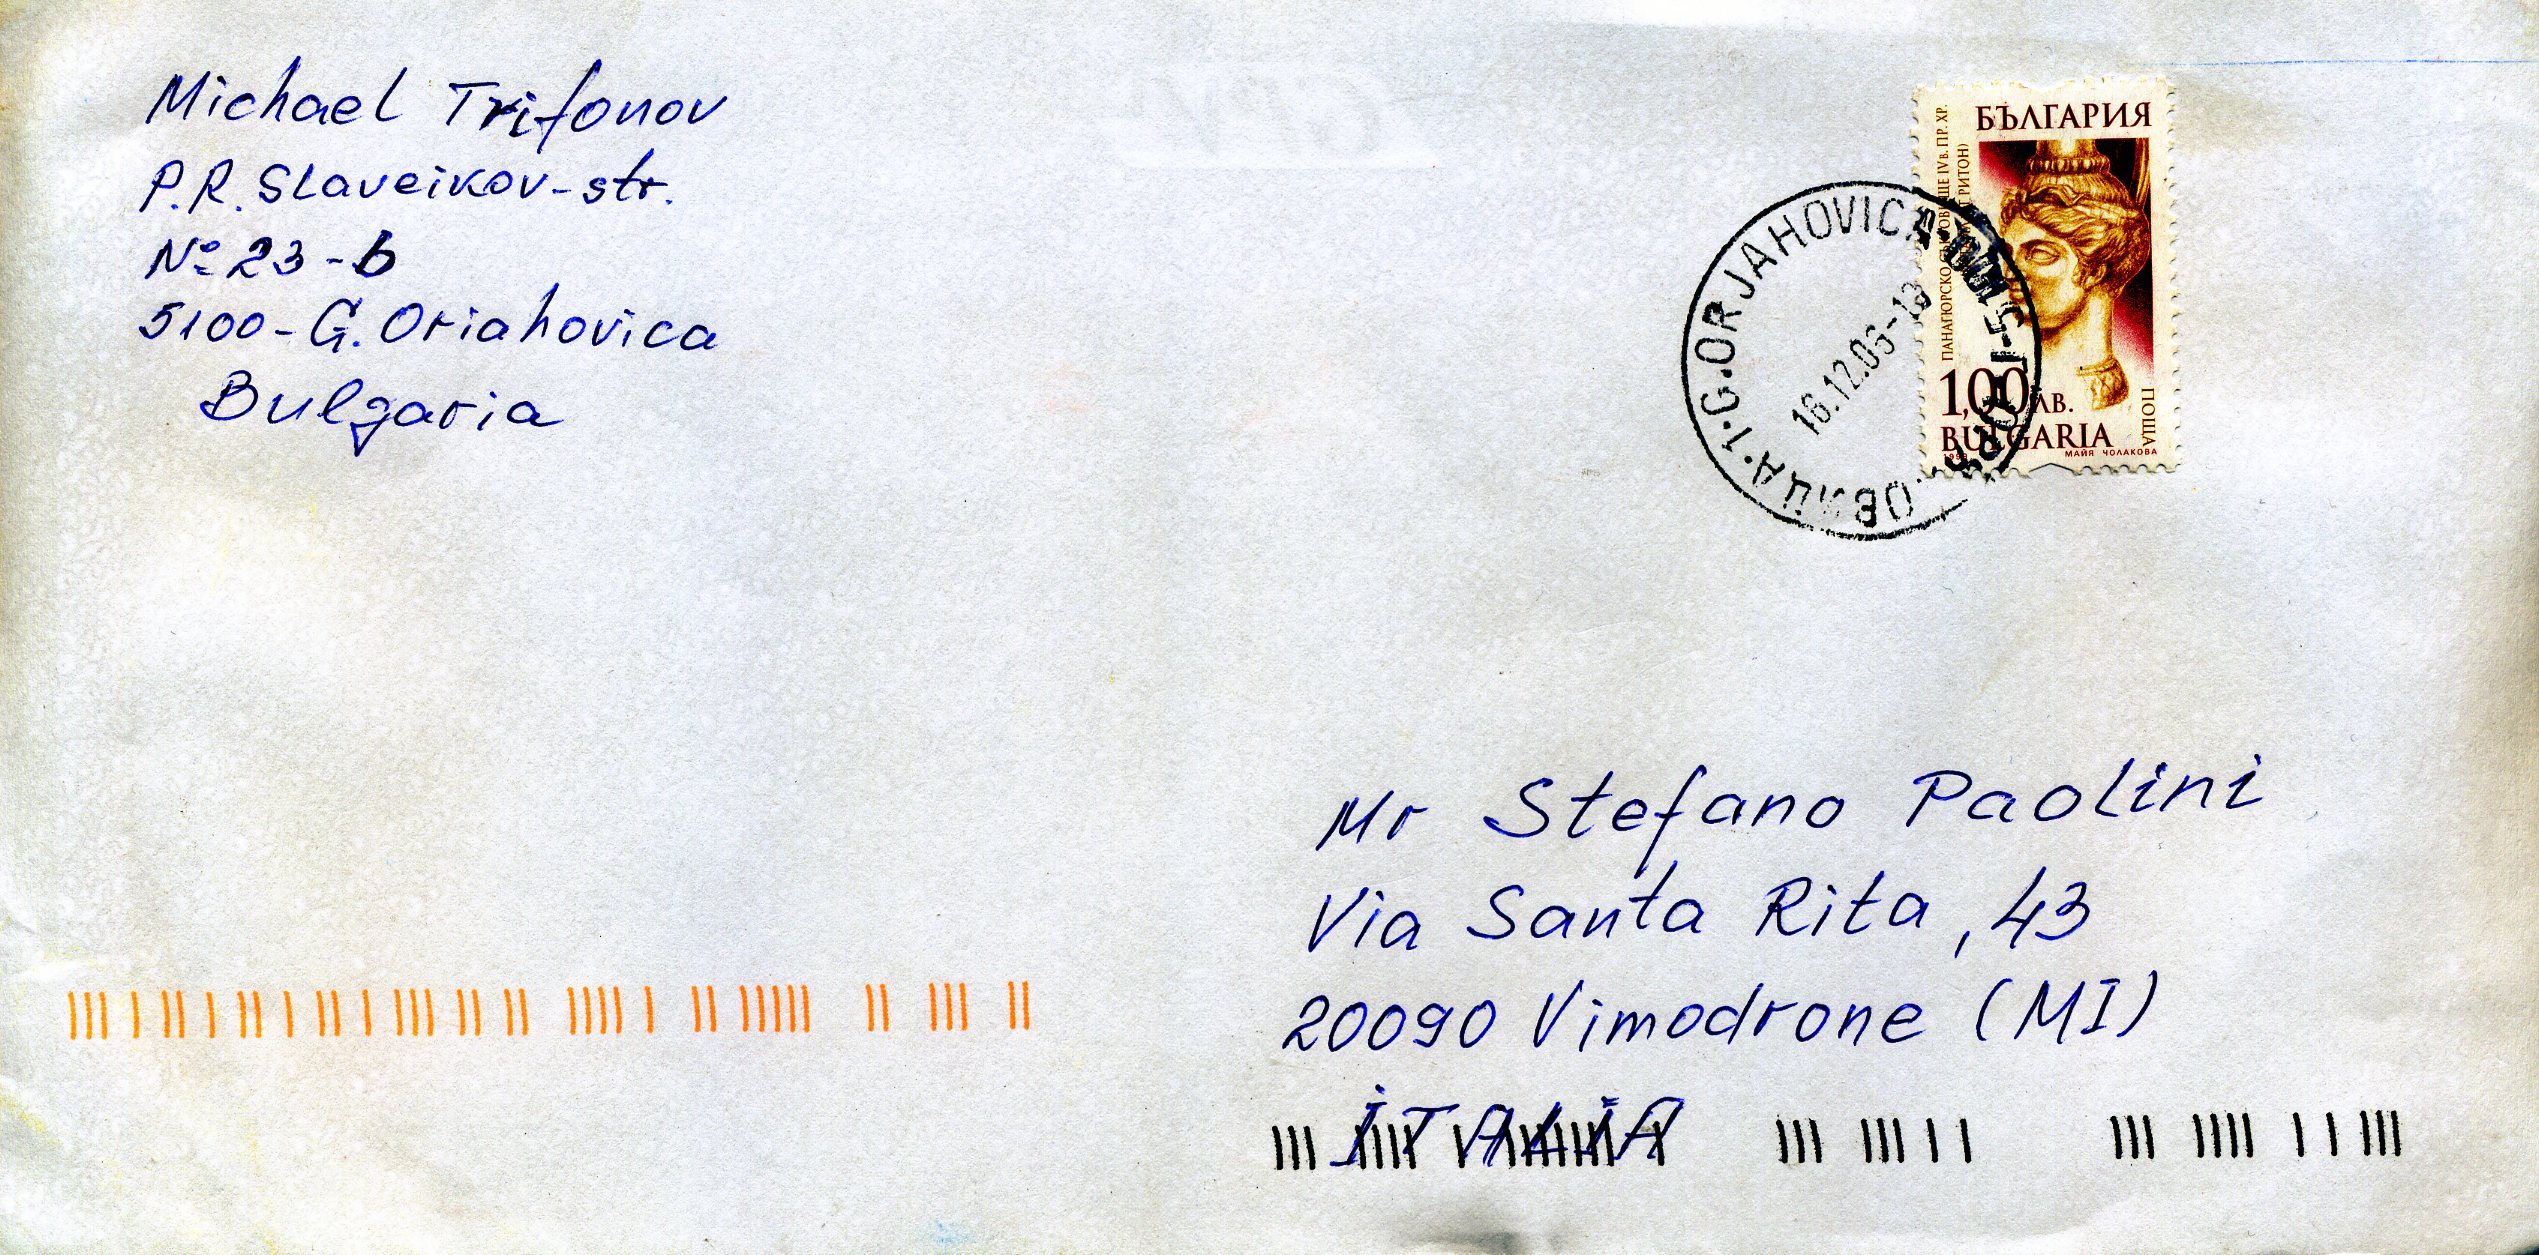 Michael Trifonov
P.R. Slaveikov-str.
№ 23-b
5100-G. Oriahovica
Bulgaria
БЪЛГАРИЯ
ПАНАГЮРСКО IV в. ПР. ХР.
РИТОН)
1,00 ЛВ.
BULGARIA
ПОЩА
МАЙЯ ЧОЛАКОВА
1·G.ORJAHOVICA
16.12.06-13
Mr Stefano Paolini
Via Santa Rita, 43
20090 Vimodrone (MI)
ITALIA